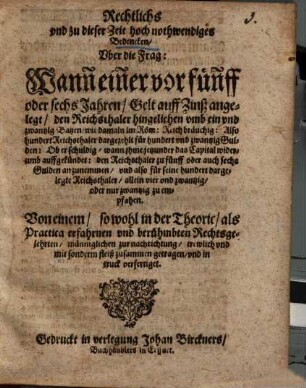 Rechtlichs
vnd zu dieser Zeit hoch nothwendiges
Bedencken/
Vber die Frag:
Wann einer vor fünff
oder sechs Jahren/ Gelt auff Zinß ange-
legt/ den Reichsthaler hingelichen vmb ein vnd
zwantzig Batzen/ wie damaln im Röm: Reich bräuchig: Also
hundert Reichsthaler dargezehlt für hundert vnd zwantzig Gul-
den: Ob er schuldig/ wann jhme jetzunder das Capital wider-
umb auffgekündet: den Reichsthaler zu fünff oder auch sechs
Gulden anzunemmen/ vnd also für seine hundert darge-
legte Reichsthaler/ allein vier vnd zwantzig/
oder nur zwantzig zu em-
pfahen.
Von einem/ so wohl in der Theoric/ als
Practica erfahrnen vnd berühmbten Rechtsge-
lehrten/ männiglichen zur nachrichtung/ trewlich vnd
mit sonderm fleiß zusammen getragen/ vnd in
truck verfertiget.
Gedruckt in verlegung Johan Birckners/
Buchhändlers in Erffurt.